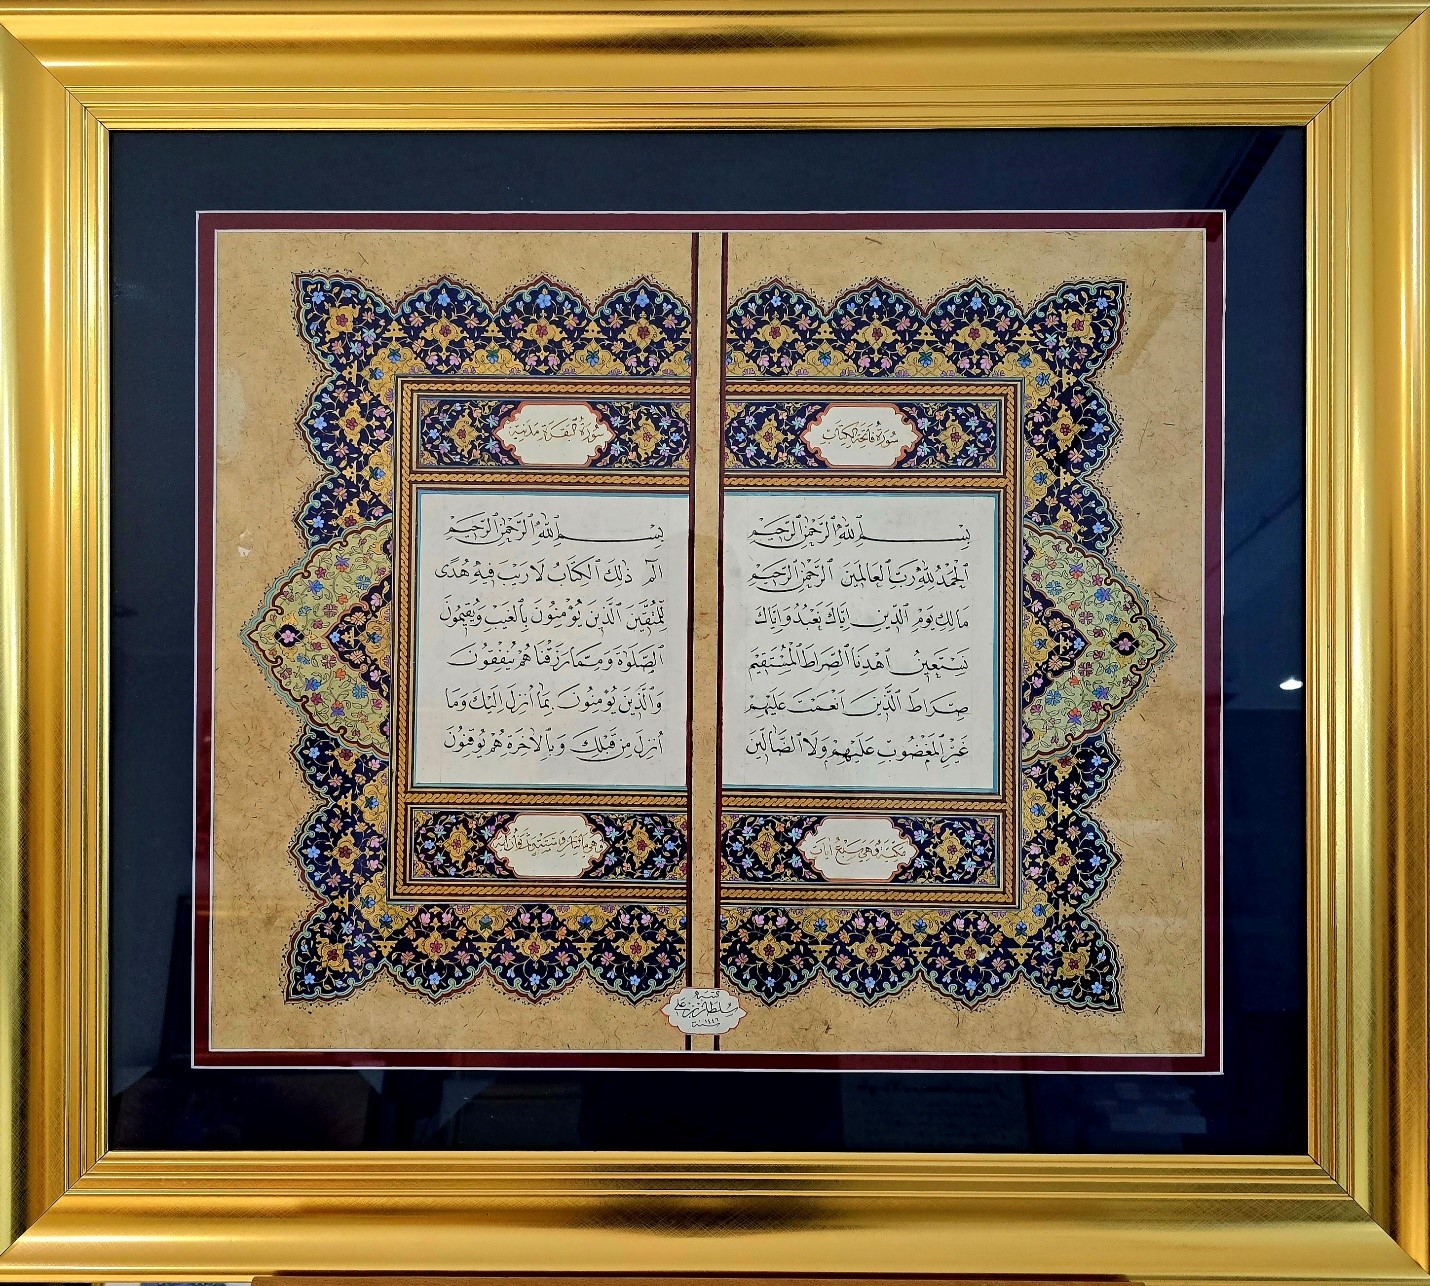 سُورَةُ فَاتِحَةِ الْكِتَابِ
بِسْمِ اللّٰهِ الرَّحْمٰنِ الرَّحِيمِ
اَلْحَمْدُ لِلّٰهِ رَبِّ الْعَالَمِينَ الرَّحْمٰنِ الرَّحِيمِ
مَالِكِ يَوْمِ الدِّينِ اِيَّاكَ نَعْبُدُ وَاِيَّاكَ
نَسْتَعِينُ اهْدِنَا الصِّرَاطَ الْمُسْتَقِيمَ
صِرَاطَ الَّذِينَ اَنْعَمْتَ عَلَيْهِمْ
غَيْرِ الْمَغْضُوبِ عَلَيْهِمْ وَلَا الضَّالِّينَ
مَكِّيَّةٌ وَهِيَ سَبْعُ اٰيَاتٍ
سُورَةُ الْبَقَرَةِ مَدَنِيَّةٌ
بِسْمِ اللّٰهِ الرَّحْمٰنِ الرَّحِيمِ
الٓمٓ ذٰلِكَ الْكِتَابُ لَا رَيْبَ فِيهِ هُدًى
لِلْمُتَّقِينَ الَّذِينَ يُؤْمِنُونَ بِالْغَيْبِ وَيُقِيمُونَ
الصَّلٰوةَ وَمِمَّا رَزَقْنَاهُمْ يُنْفِقُونَ
وَالَّذِينَ يُؤْمِنُونَ بِمَا اُنْزِلَ اِلَيْكَ وَمَا
اُنْزِلَ مِنْ قَبْلِكَ وَبِالْاٰخِرَةِ هُمْ يُوقِنُونَ
وَهِيَ مِائَتَانِ وَسِتٌّ وَثَمَانُونَ اٰيَةً
كتبه
علي
سنة ١٤٤٦